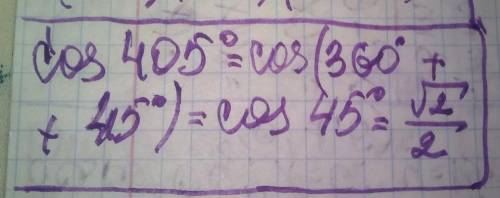 cos 405° = cos(360° +
+ 45°) = cos 45° = √2/2